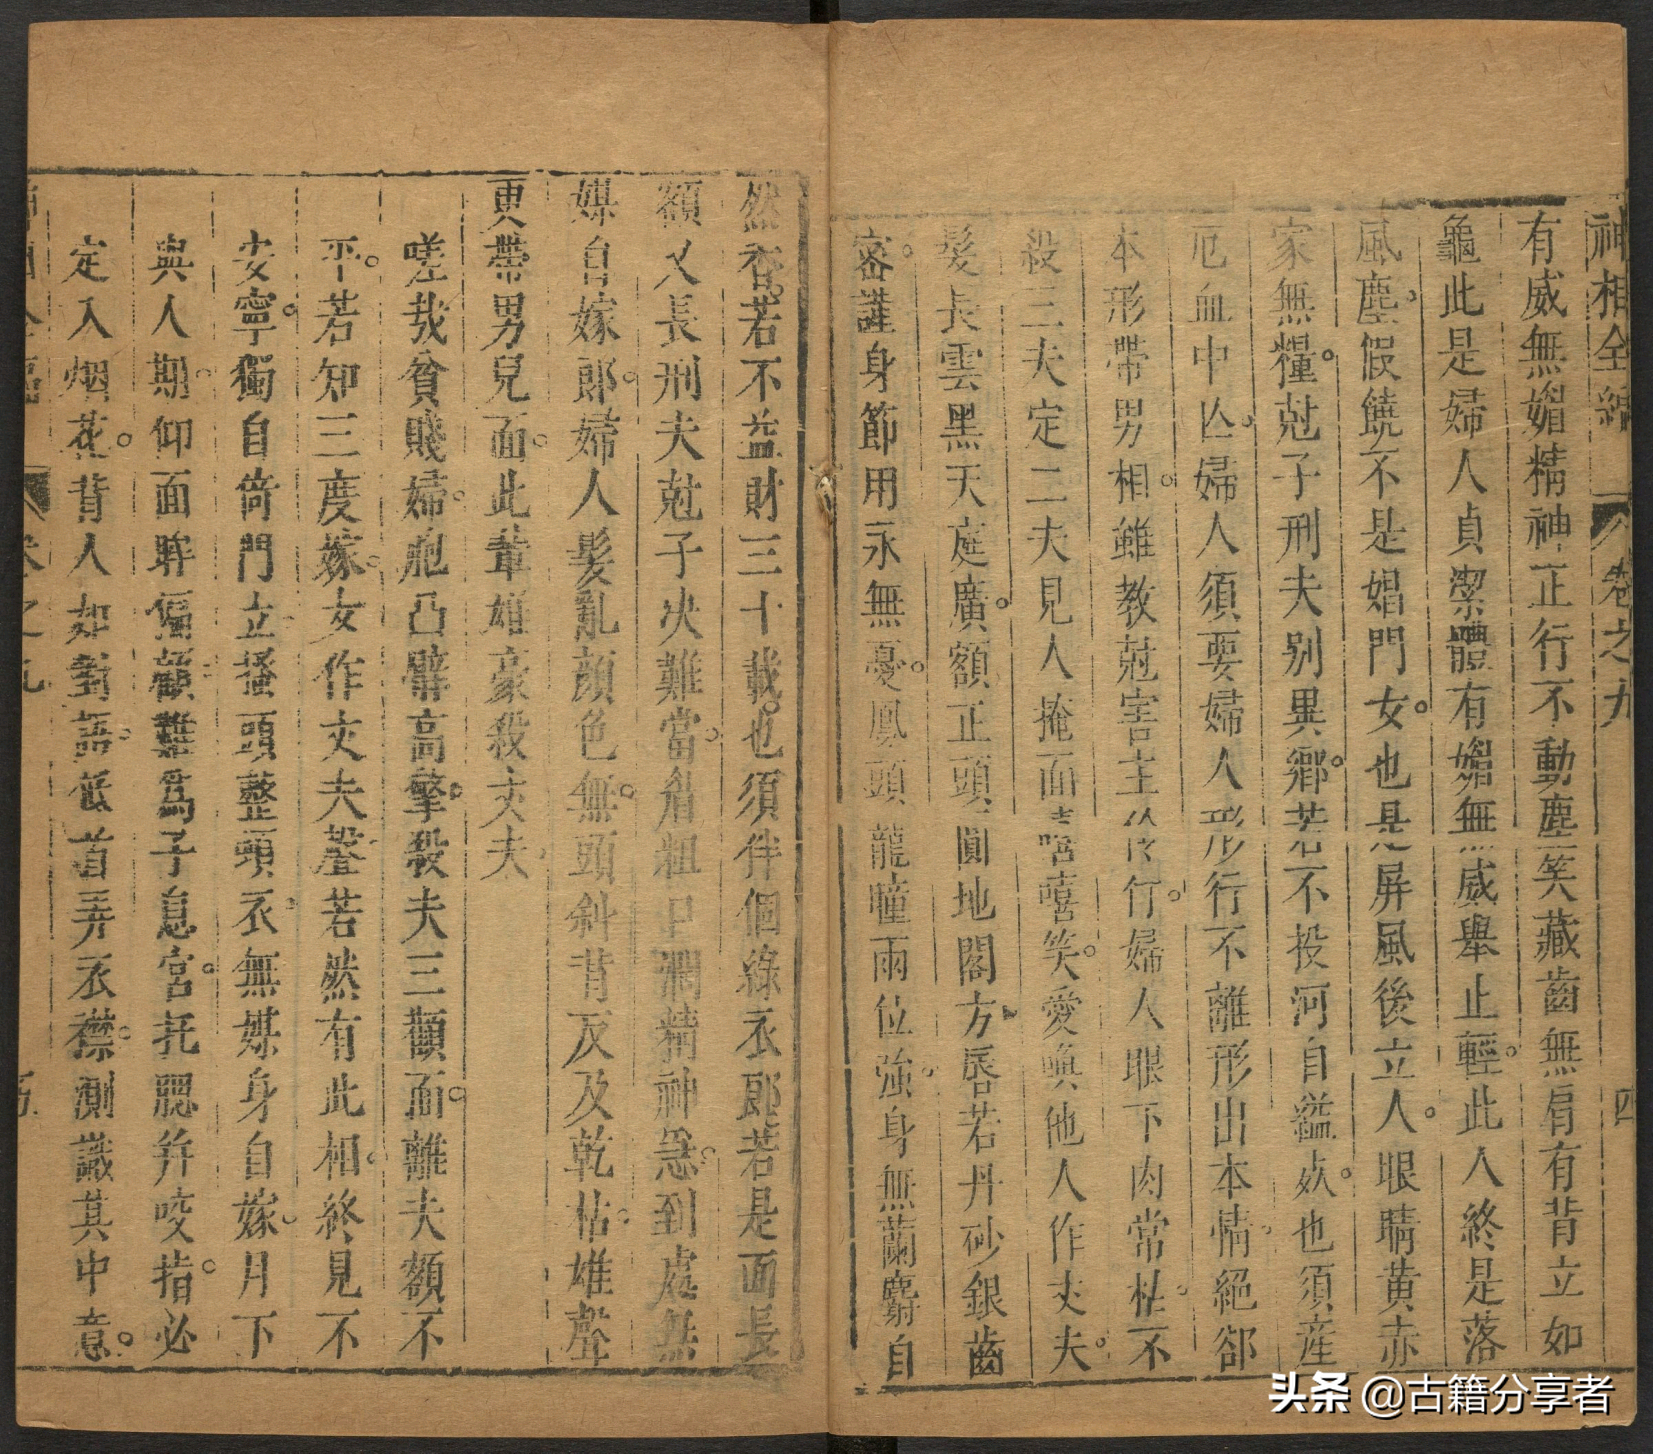 神相全編 卷之九 四
有威無媚精神正行不動塵笑藏齒無肩有背立如
龜此是婦人貞潔體有媚無威舉止輕此人終是落
風塵假饒不是娼門女也是屏風後立人眼睛黄赤
家無糧尅子刑夫别異鄉若不投河自縊妖也須產
厄血中亾婦人須要婦人形行不離形出本情絕郤
本形帶男相雖教尅害主伶仃婦人眼下肉常枯不
殺三夫定二夫見人掩面嘻笑愛喚他人作丈夫
髮長雲黑天庭廣額正頭圓地閣方唇若丹砂銀齒
密謹身節用永無憂鳳頭龍瞳兩位強身無蘭麝自
然香若不益財三十載也須伴個綠衣郎若是面長
額又長刑夫尅子决難當眉粗口濶精神急到處無
媒自嫁郎婦人髮亂顔色無頭斜背反及乾枯雄聲
更帶男兒面此輩雄豪殺丈夫
嗟哉貧賤婦胞凸臂高擎殺夫三顴面離夫額不
平若知三度嫁女作丈夫聲若然有此相終見不
安寧獨自倚門立搔頭整頭衣無媒身自嫁月下
與人期仰面眸偏顧難爲子息宫托腮并咬指必
定入烟花背人如對語低首弄衣襟測識其中意
卷之九 五
头条 @古籍分享者